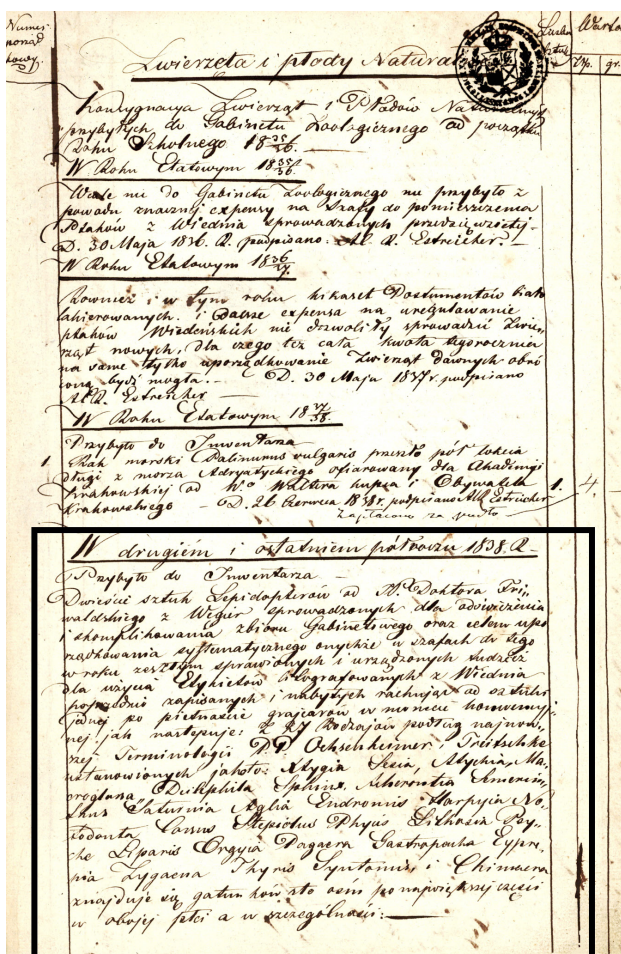 Numer
porząd
kowy.
Zwierzęta i płody Natural
Liczba
Sztuk
Wartoś
Złp. gr.
Konsygnacya Zwierząt i Płodów Naturalnych
przybyłych do Gabinetu Zoologicznego od początku
Roku Szkolnego 18 35/36.
W Roku Etatowym 18 35/36.
Wcale nic do Gabinetu Zoologicznego nie przybyło z
powodu znacznej expensy na Szafy do pomieszczenia
Ptaków z Wiednia sprowadzonych przedsięwziętej.
D. 30 Maja 1836. R. podpisano. Al. R. Estreicher. —
W Roku Etatowym 18 36/37.
Również i w tym roku kilkaset Postumentów biało
lakierowanych i dalsze expensa na uregulowanie
ptaków Wiedeńskich nie dozwoliły sprowadzić Zwie„
rząt nowych, dla czego też cała kwota tegorocznia
na same tylko uporządkowanie Zwierząt dawnych obró
coną bydź mogła. — D. 30 Maja 1837 r. podpisano
Al. R. Estreicher —
W Roku Etatowym 18 37/38.
Przybyło do Inwentarza
1. Rak morski Palinurus vulgaris przeszło pół łokcia
długi z morza Adryatyckiego ofiarowany dla Akademyi
Krakowskiej od Wo Waltera kupca i Obywatela 1. 4.
Krakowskiego — D. 26 Czerwca 1838 r. podpisano Al R Estreicher
Zapłacono za pudło
W drugiém i ostatniém półroczu 1838. R. —
Przybyło do Inwentarza —
Dwieście sztuk Lepidopterów od P. Doktora Fri„
waldskiego z Węgier sprowadzonych dla odświeżenia
i skomplikowania zbioru Gabinetowego oraz celem upo
rządkowania systematycznego onychże w szafach do tego
w roku zeszłym sprawionych i urządzonych tudzież
dla użycia Etykietów litografowanych z Wiednia
poprzednio zapisanych i nabytych rachując od sztuki
jednej po piętnaście grajcarów w monecie konwencyj
nej jak następuje: Z 27 Rodzajów podług najnow„
szej Terminologii PP. Ochsenheimer i Treitschke
ustanowionych jakoto: Atygia Sesia, Atychia, Ma„
croglossa Deilephila Sphinx, Acherontia Smerin„
thus Saturnia Aglia Endromis Harpyia No„
todonta Cossus Hepiolus Phycis Lithosia Psy„
che Liparis Orgyia Dagaera Gastropacha Eypre„
pia Zygaena Thyris Syntomis i Chimaera
znajduje się gatunków sto ośm po największej części
w obojej płci a w szczególności: —